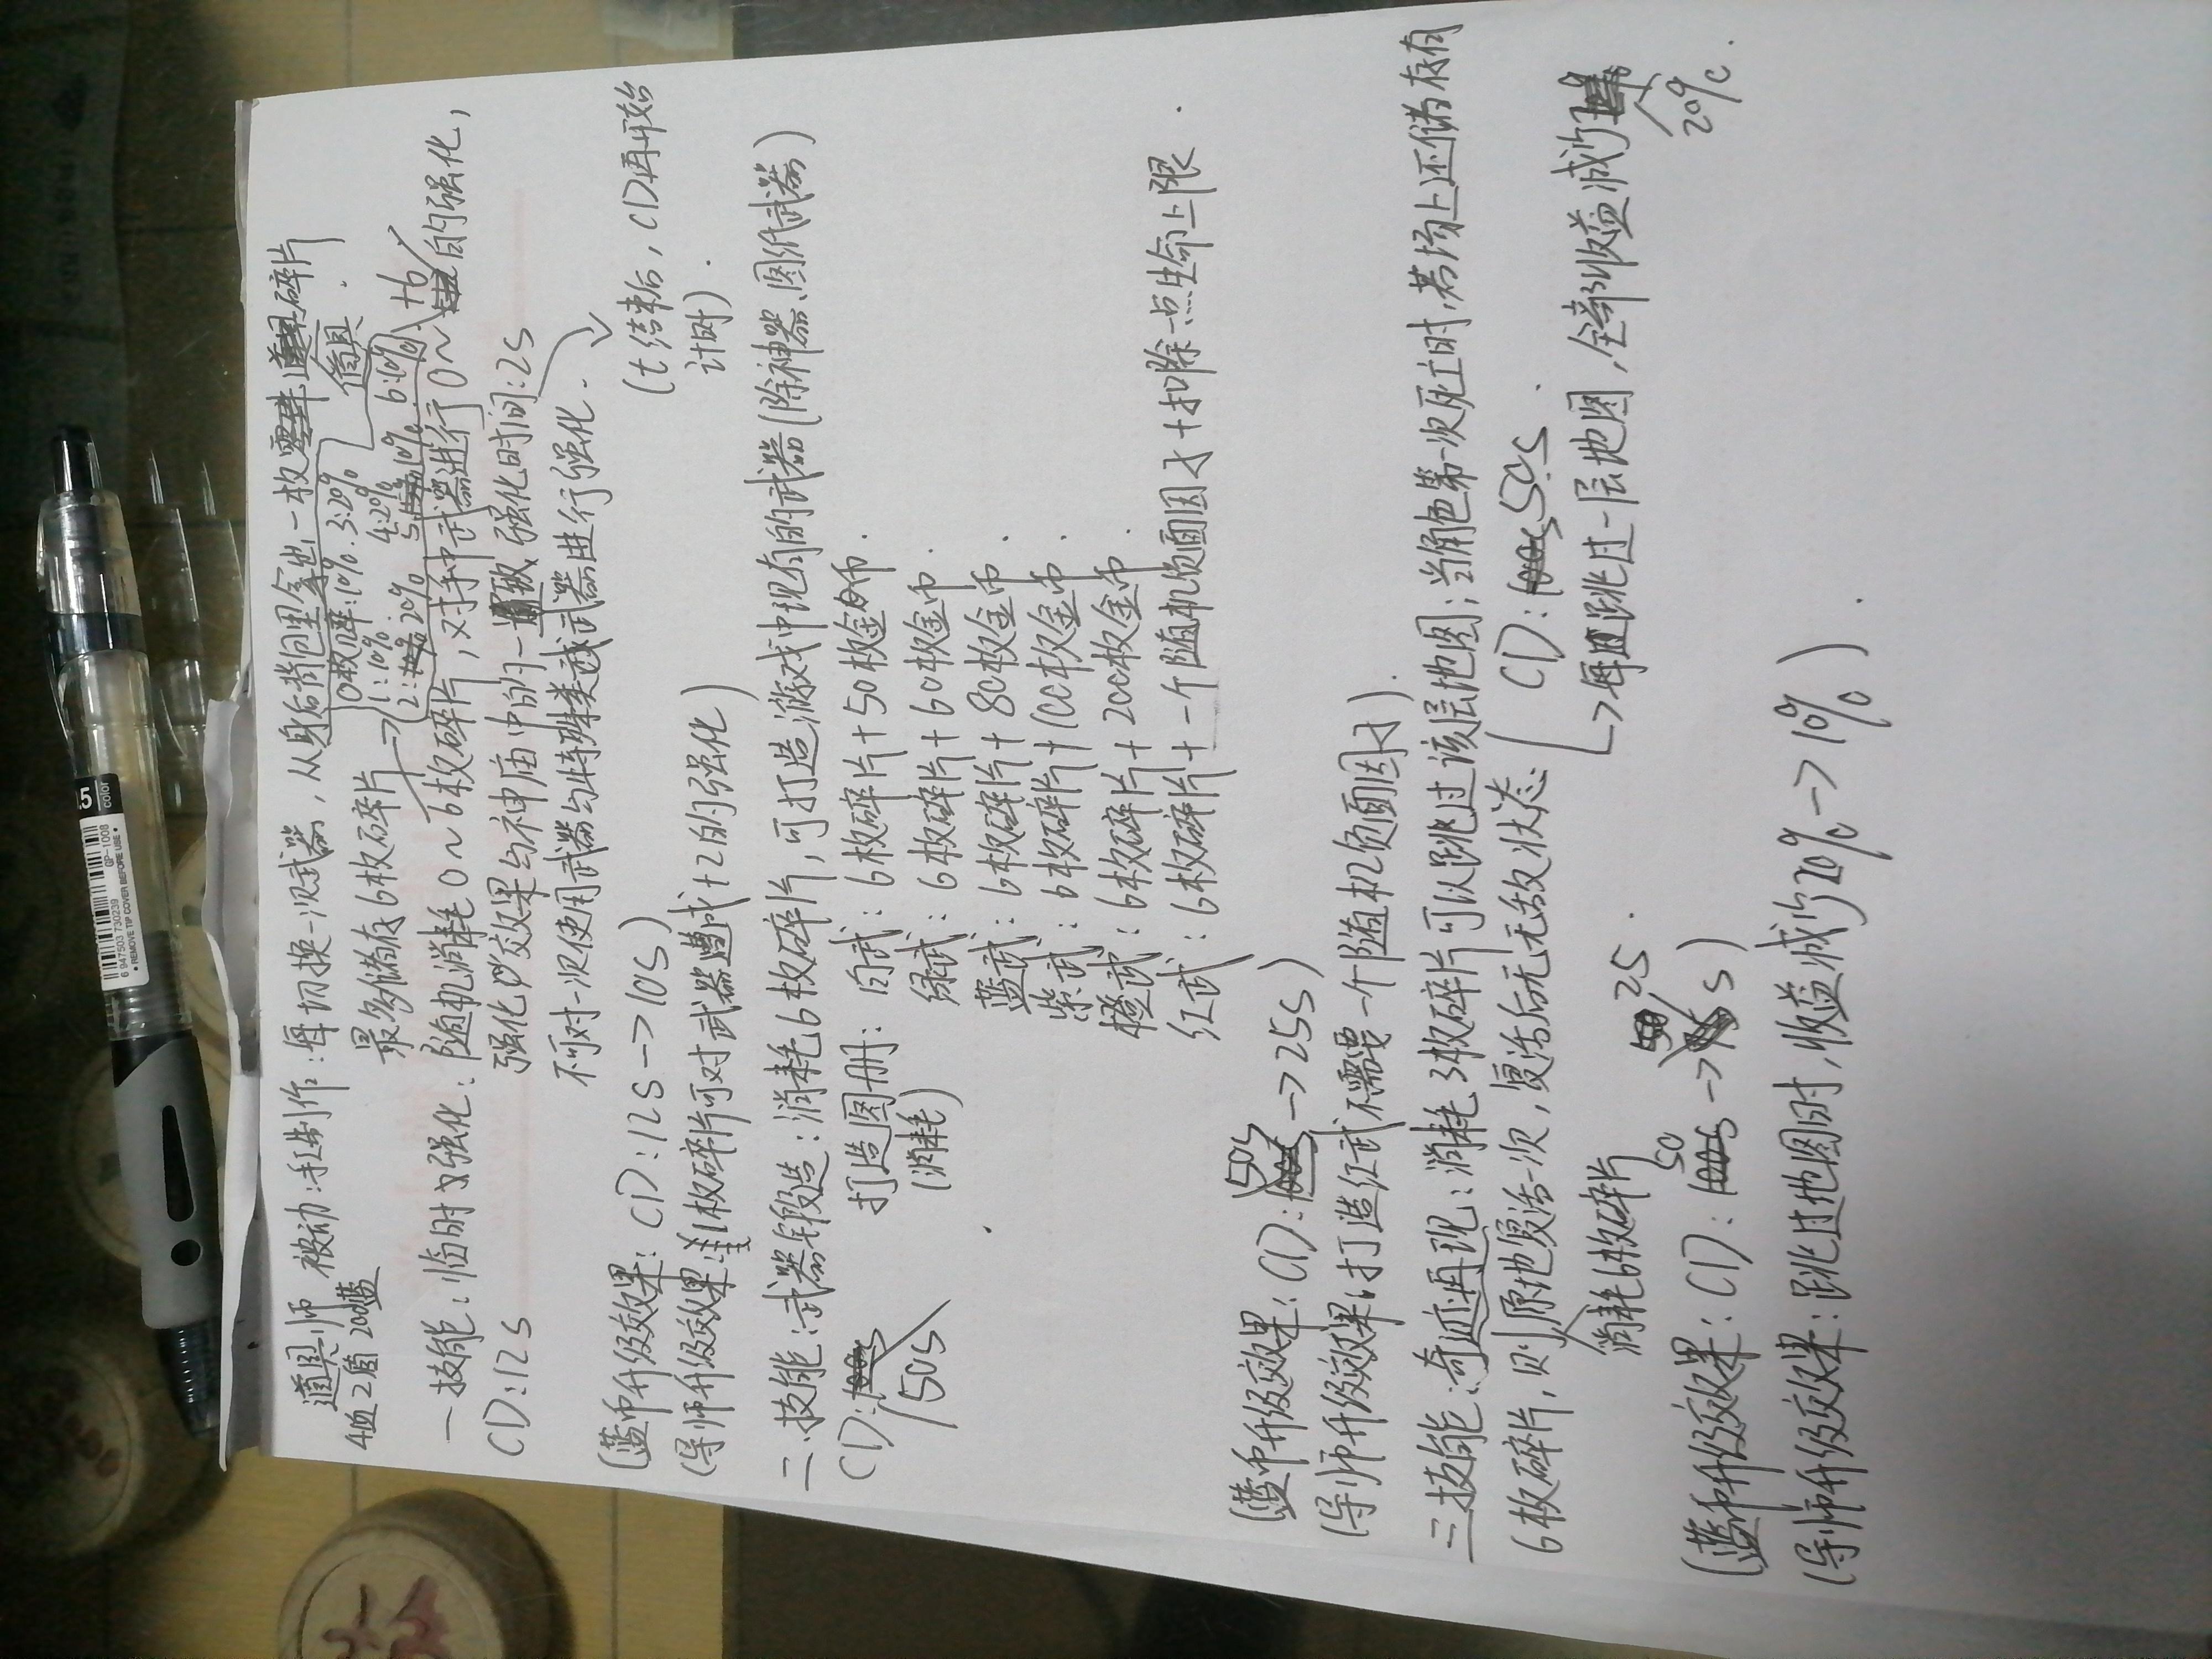 道具师 被动:手工制作:每切换一次武器,从身后背包里拿出一枚道具碎片
4血2盾200蓝 最多储存6枚碎片
0枚概率:10%. 3:20%
1:10%. 4:20%
2:20% 5:10% 6:10%
一技能:临时强化:随机消耗0~6枚碎片,对手中武器进行0~+6的强化,
CD:12s 强化效果与神庙中的一致,强化时间:2s
不可对一次使用武器与特殊类武器进行强化.
(t结束后,CD再开始
计时).
(蓝币升级效果:CD:12s->10s)
(导师升级效果:1枚碎片可对武器造成+2的强化)
二.技能:武器锻造:消耗6枚碎片,可打造游戏中现有的武器(除神器、图纸武器)
CD:50s 打造图册:白武:6枚碎片+50枚金币.
(消耗) 绿武:6枚碎片+60枚金币.
蓝武:6枚碎片+80枚金币.
紫武:6枚碎片+100枚金币.
橙武:6枚碎片+200枚金币.
红武:6枚碎片+一个随机负面因子+扣除一点生命上限.
(蓝币升级效果:CD:50s->25s)
(导师升级效果:打造红武不需要一个随机负面因子).
三技能:奇迹再现:消耗3枚碎片可以跳过该层地图;当角色第一次死亡时,若场上还储存有
6枚碎片,则原地复活一次,复活后无无敌状态. CD:50s.
消耗6枚碎片
->每跳过一层地图,全部收益减少20%.
(蓝币升级效果:CD:50s->25s)
(导师升级效果:跳过地图时,收益减少20%->10%).